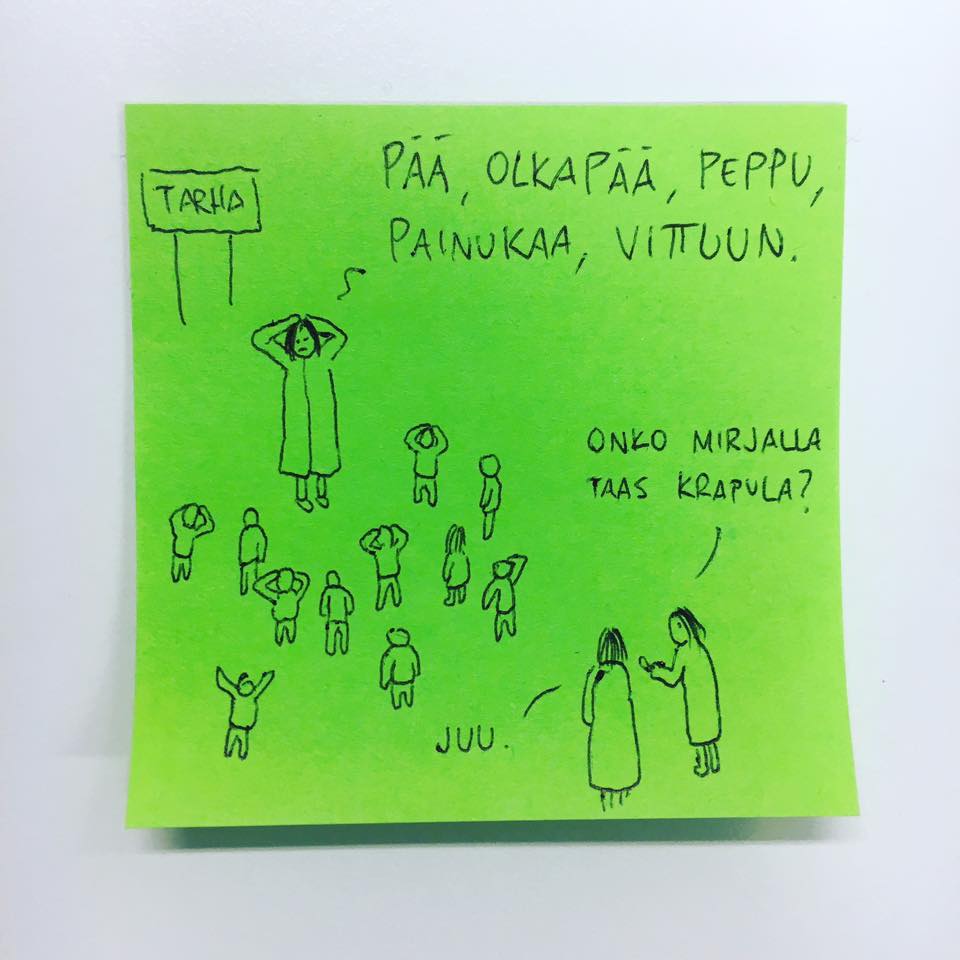 TARHA
PÄÄ, OLKAPÄÄ, PEPPU,
PAINUKAA, VITTUUN.
ONKO MIRJALLA
TAAS KRAPULA?
JUU.